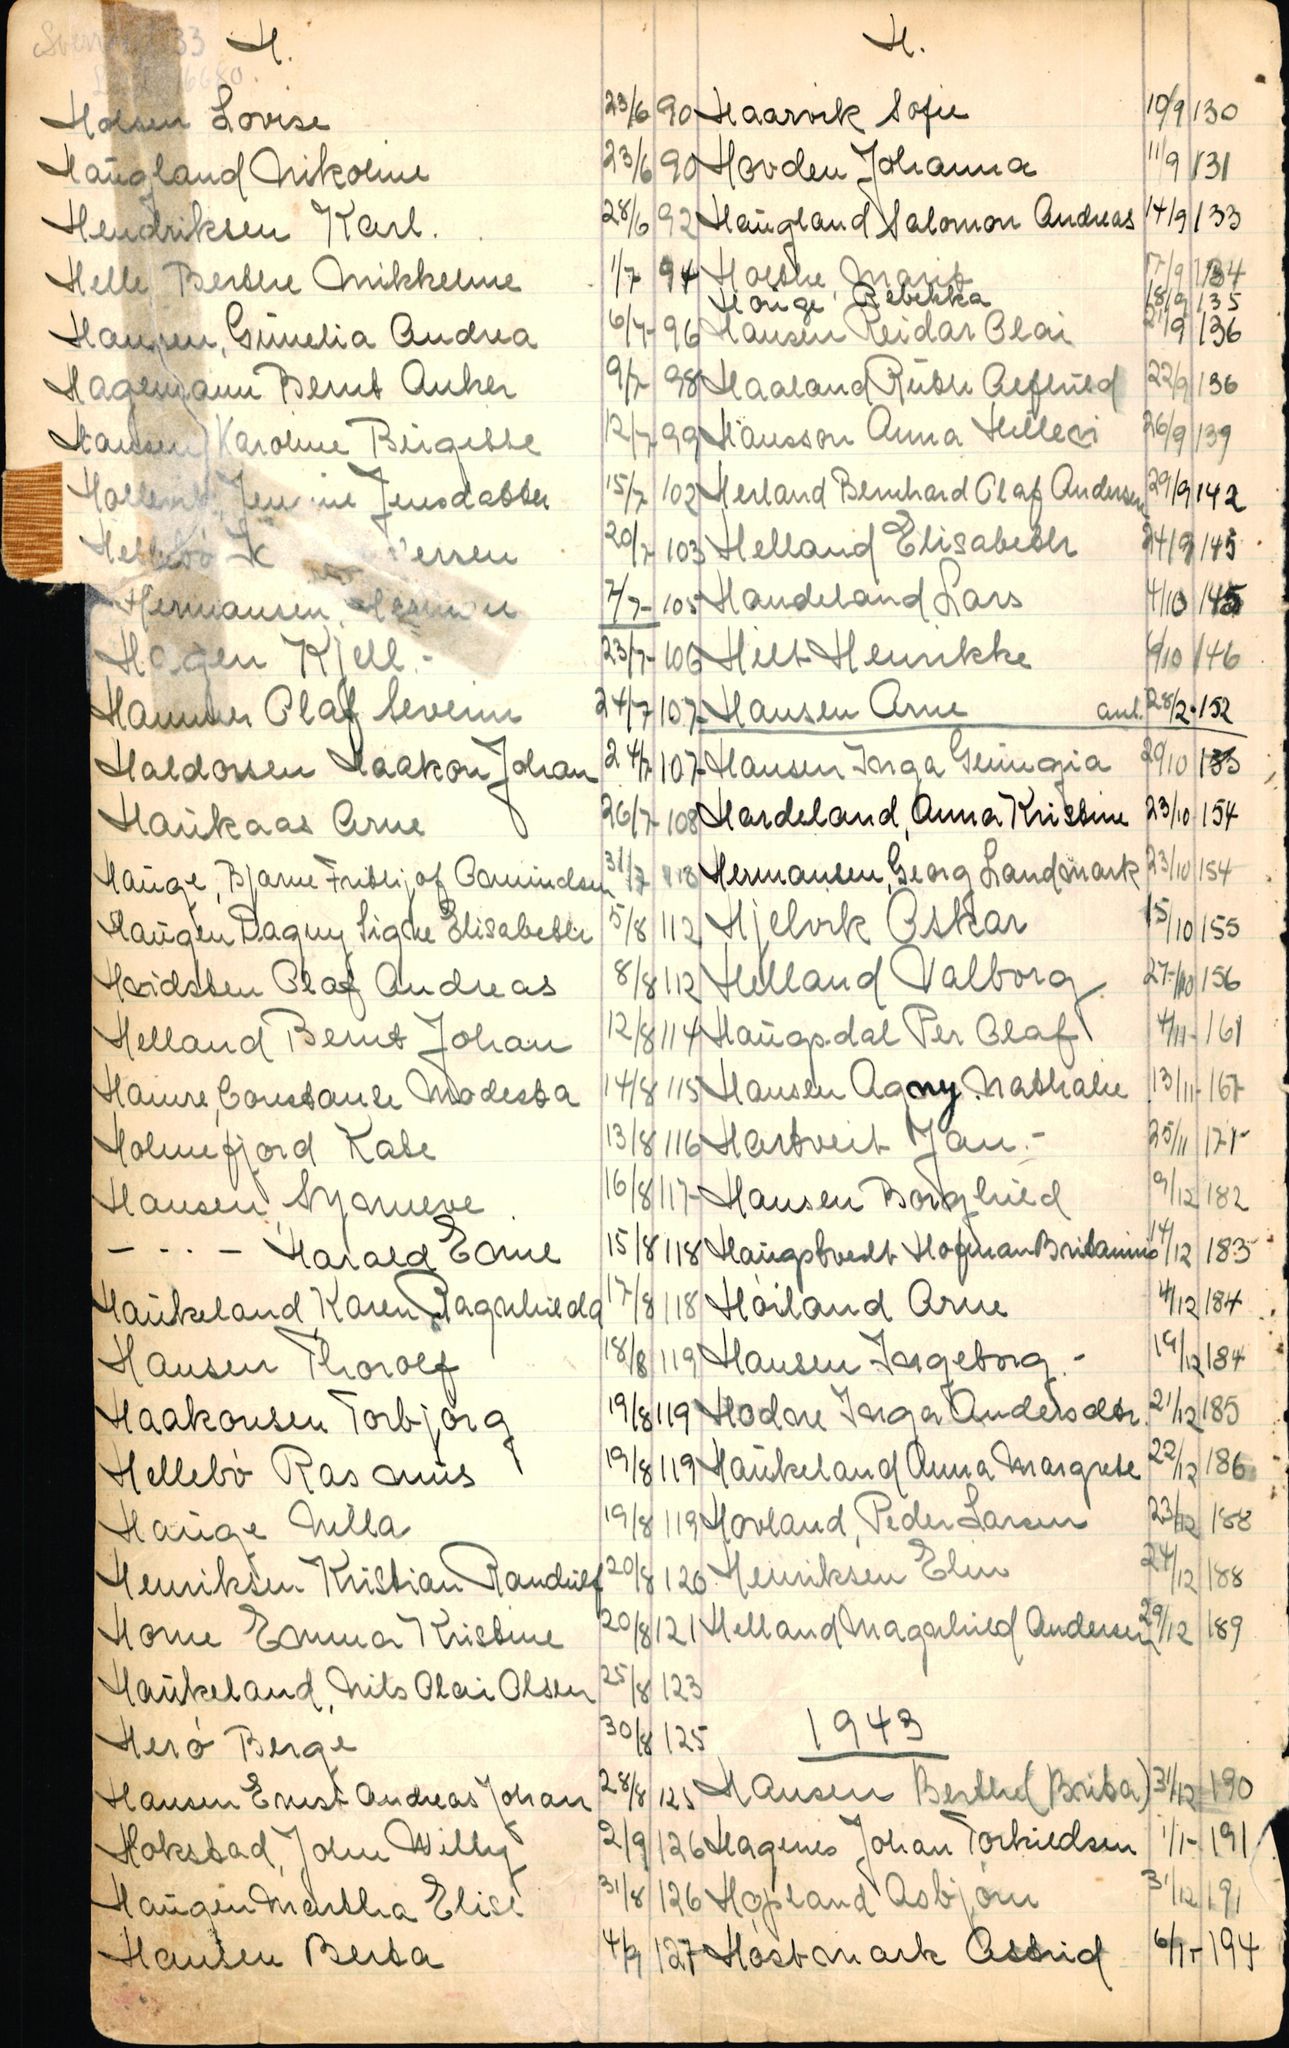 H.
Holsen Lovise 23/6 90
Haugland Nikoline 23/6 90
Hendriksen Karl. 28/6 92
Helle Berthe Mikkeline 1/7 94
Hansen, Gunelia Andrea 6/7 96
Hagemann Bernt Anker 9/7 98
Hansen Karoline Birgitte 12/7 99
Jensdatter 15/7 102
Hellebö 20/7 103
Hermansen, 2/7 105
Hagen Kjell - 23/7 106
Hammer Olaf Severin 24/7 107
Haldorsen Haakon Johan 24/7 107
Haukaas Arne 26/7 108
Hauge, Bjarne Frithjof Aamundsen 31/7 118
Haugen Dagny Signe Elisabeth 5/8 112
Hvidsten Olaf Andreas 8/8 112
Helland Bernt Johan 12/8 114
Hamre, Constanse Modesta 14/8 115
Holmefjord Kate 13/8 116
Hansen, Synneve 16/8 117
- . . - Harald Emil 15/8 118
Haukeland Karen Ragnhilda 17/8 118
Hansen Thorolf 18/8 119
Haakonsen Torbjörg 19/8 119
Hellebö Rasmus 19/8 119
Hauge Nilla 19/8 119
Henriksen Kristian Randulf 20/8 120
Horne Emma Kristine 20/8 121
Haukeland, Nils Olai Olsen 25/8 123
Herö Berge 30/8 125
Hansen Ernst Andreas Johan 28/8 125
Hokstad, John Willy 2/9 126
Haugen Martha Elise 31/8 126
Hansen Berta 4/9 127
H.
Haarvik Sofie 10/9 130
Hovden Johanna 11/9 131
Haugland Salomon Andreas 14/9 133
Holthe, Marit 17/9 134
Hauge, Rebekka 18/9 135
Hansen Reidar Olai 21/9 136
Haaland Ruth Alfhild 22/9 136
Hansson Anna Hellevi 26/9 139
Herland Bernhard Olaf Andersen 29/9 142
Helland Elisabeth 24/9 145
Handeland Lars 4/10 145
Hilt Henrikke 6/10 146
Hansen Arne anl. 28/2. 152
Hansen Inga Georgia 20/10 153
Hardeland, Anna Kristine 23/10 154
Hermansen, Georg Landmark 23/10 154
Hjelvik Oskar 15/10 155
Helland Valborg 27/10 156
Haugsdal Per Olaf 4/11 161
Hansen Agny Nathalie 13/11 167
Hartveit Jan - 25/11 171
Hansen Borghild 9/12 182
Haugstvedt Hofman Britanius 14/12 183
Höiland Arne 4/12 184
Hansen Ingeborg - 19/12 184
Hodne Inga Andersdtr. 21/12 185
Haukeland Anna Margrete 22/12 186
Hovland, Peder Larsen 23/12 188
Henriksen Elin 24/12 188
Helland Magnhild Andersen 29/12 189
1943
Hansen Berthe (Brita) 31/12 190
Hagenes Johan Torkildsen 1/1 191
Hopland Asbjörn 31/12 191
Hostmark Astrid 6/1 194